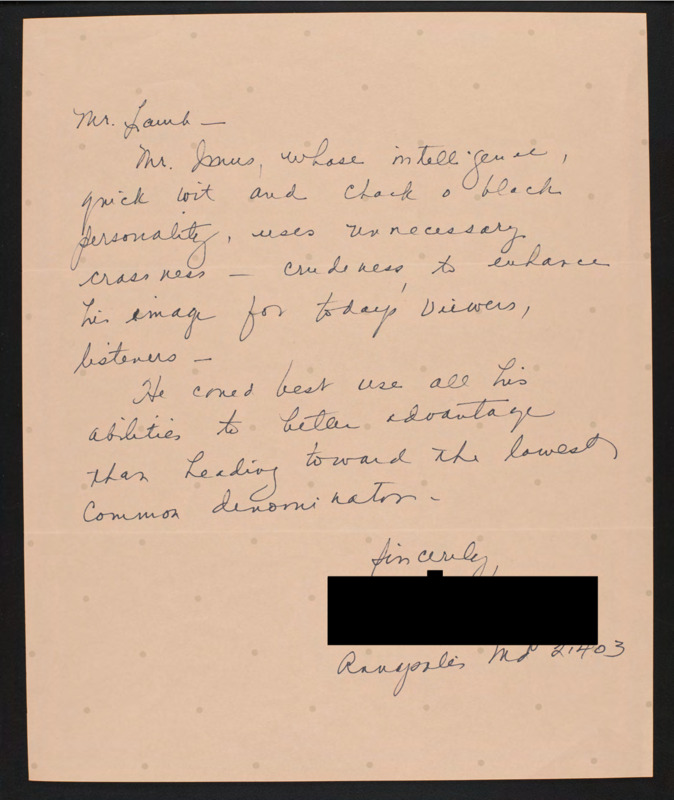 Mr. Lamb —
Mr. Imus, whose intelligence,
quick wit and chock o block
personality, uses unnecessary
crassness — crudeness, to enhance
his image for todays' viewers,
listeners —
He could best use all his
abilities to better advantage
than heading toward the lowest
common denominator —
Sincerely,
Annapolis Md 21403